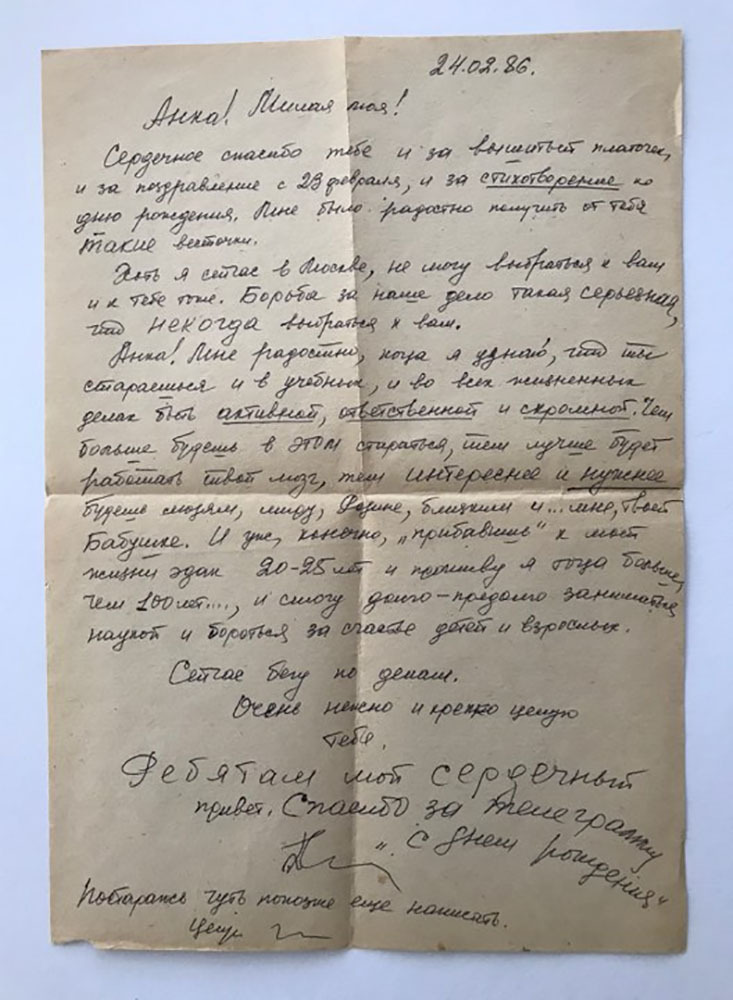 24.02.86.
Анка! Милая моя!
Сердечное спасибо тебе и за вышитый платочек,
и за поздравление с 23 февраля, и за стихотворение ко
дню рождения. Мне было радостно получить от тебя
такие весточки.
Хоть я сейчас в Москве, не могу выбраться к вам
и к тебе тоже. Борьба за наше дело такая серьезная,
что некогда выбраться к вам.
Анка! Мне радостно, когда я узнаю, что ты
стараешься и в учебных, и во всех жизненных
делах быть активной, ответственной и скромной. Чем
больше будешь в этом стараться, тем лучше будет
работать твой мозг, тем интереснее и нужнее
будешь людям, миру, Родине, близким и... мне, твоей
Бабушке. И уж, конечно, „прибавишь“ к моей
жизни эдак 20-25 лет и проживу я тогда больше,
чем 100 лет...., и смогу долго-предолго заниматься
наукой и бороться за счастье детей и взрослых.
Сейчас бегу по делам.
Очень нежно и крепко целую
тебя.
Ребятам мой сердечный
привет. Спасибо за телеграмму
„С днем рождения“
Постараюсь чуть попозже еще написать.
Целую